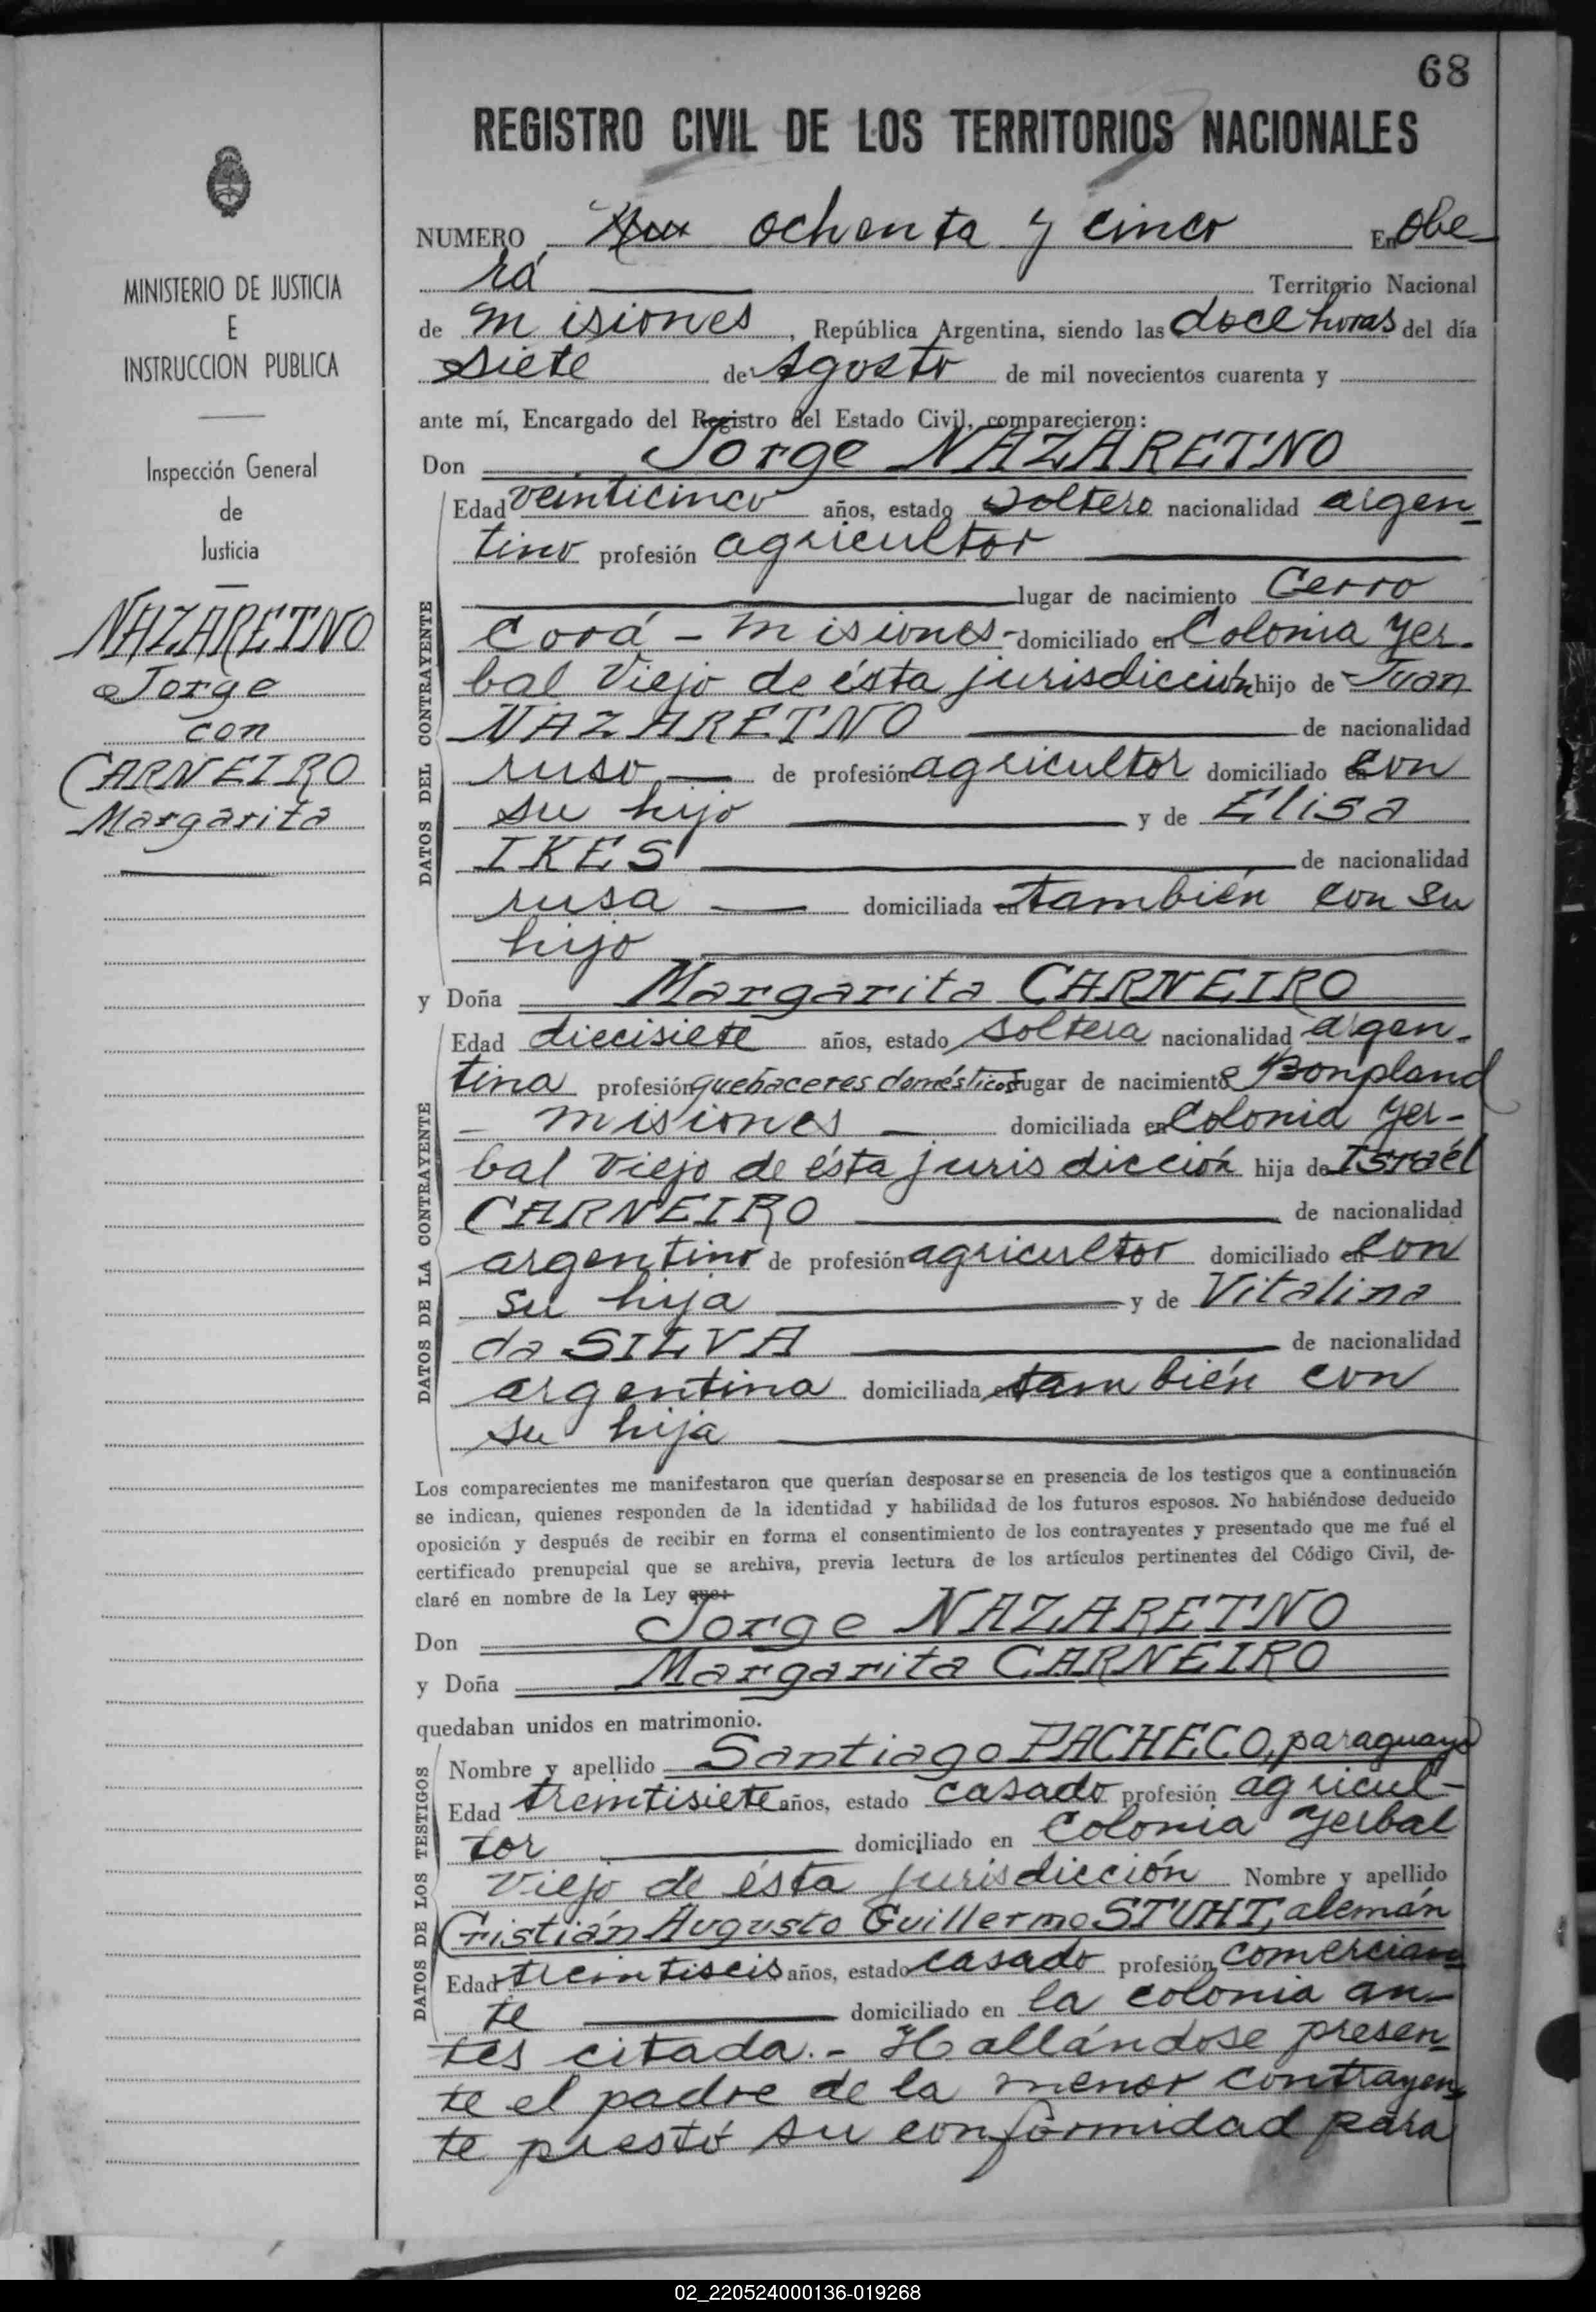 68
REGISTRO CIVIL DE LOS TERRITORIOS NACIONALES
NUMERO ochenta y cinco En Obe-
rá Territorio Nacional
de Misiones, República Argentina, siendo las doce horas del día
siete de Agosto de mil novecientos cuarenta y
ante mí, Encargado del Registro del Estado Civil, comparecieron:
Don Jorge NAZARETNO
Edad veinticinco años, estado soltero nacionalidad argen-
tino profesión agricultor
lugar de nacimiento Cerro
Corá - Misiones - domiciliado en Colonia Yer-
bal Viejo de ésta jurisdicción hijo de Juan
NAZARETNO de nacionalidad
ruso de profesión agricultor domiciliado en con
su hijo y de Elisa
IKES de nacionalidad
rusa domiciliada en también con su
hijo
y Doña Margarita CARNEIRO
Edad diecisiete años, estado soltera nacionalidad argen-
tina profesión quehaceres domésticos lugar de nacimiento Bonpland
- Misiones domiciliada en Colonia Yer-
bal Viejo de ésta jurisdicción hija de Israél
CARNEIRO de nacionalidad
argentino de profesión agricultor domiciliado en con
su hija y de Vitalina
da SILVA de nacionalidad
argentina domiciliada en también con
su hija
DATOS DEL CONTRAYENTE
DATOS DE LA CONTRAYENTE
Los comparecientes me manifestaron que querían desposarse en presencia de los testigos que a continuación
se indican, quienes responden de la identidad y habilidad de los futuros esposos. No habiéndose deducido
oposición y después de recibir en forma el consentimiento de los contrayentes y presentado que me fué el
certificado prenupcial que se archiva, previa lectura de los artículos pertinentes del Código Civil, de-
claré en nombre de la Ley que:
Don Jorge NAZARETNO
y Doña Margarita CARNEIRO
quedaban unidos en matrimonio.
Nombre y apellido Santiago PACHECO, paraguayo
Edad treintisiete años, estado casado profesión agricul-
tor domiciliado en Colonia Yerbal
Viejo de ésta jurisdicción Nombre y apellido
Cristián Augusto Guillermo STUHT, alemán
Edad treintiseis años, estado casado profesión comercian-
te domiciliado en la colonia an-
tes citada.- Hallándose presen-
te el padre de la menor contrayen-
te prestó su conformidad para
DATOS DE LOS TESTIGOS
MINISTERIO DE JUSTICIA
E
INSTRUCCION PUBLICA
Inspección General
de
Justicia
NAZARETNO
Jorge
con
CARNEIRO
Margarita
02_220524000136-019268